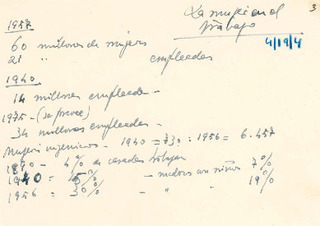 La mujer en el
trabajo
3
4/19/4
1957
60 millones de mujeres
21 " empleadas
1940
14 millones empleadas -
1975 - (se prevee)
34 millones empleadas -
Mujeres ingenieros - 1940 = 730 : 1956 = 6.457
1890 - 4% de casadas trabajan
1940 - 15% - madres con niños 7%
1956 = 30% - " " 19%